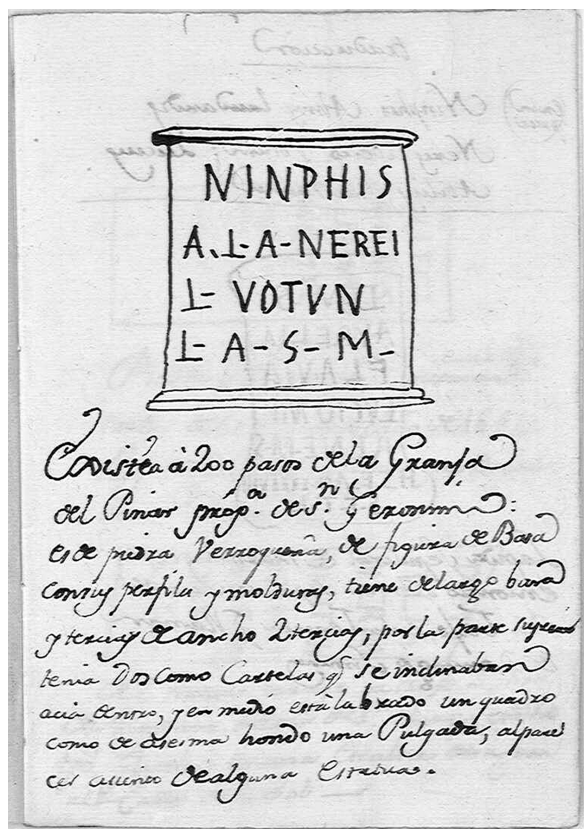 NINPHIS
A. L- A- NEREI
L- VOTVN
L- A- S- M-
Existía à 200 pasos de la Granja
del Pinar prop.a de S.n Geronimo:
es de piedra Verroqueña, de figura de Basa
con sus perfiles y molduras, tiene de largo bara
y tercia, de ancho 2 tercias, por la parte
tenia Dos como Cartelas q.e se inclinaban
acia dentro, y en medio està labrado un quadro
como de hondo una Pulgada, al parecer
cer asiento de alguna Estatua.